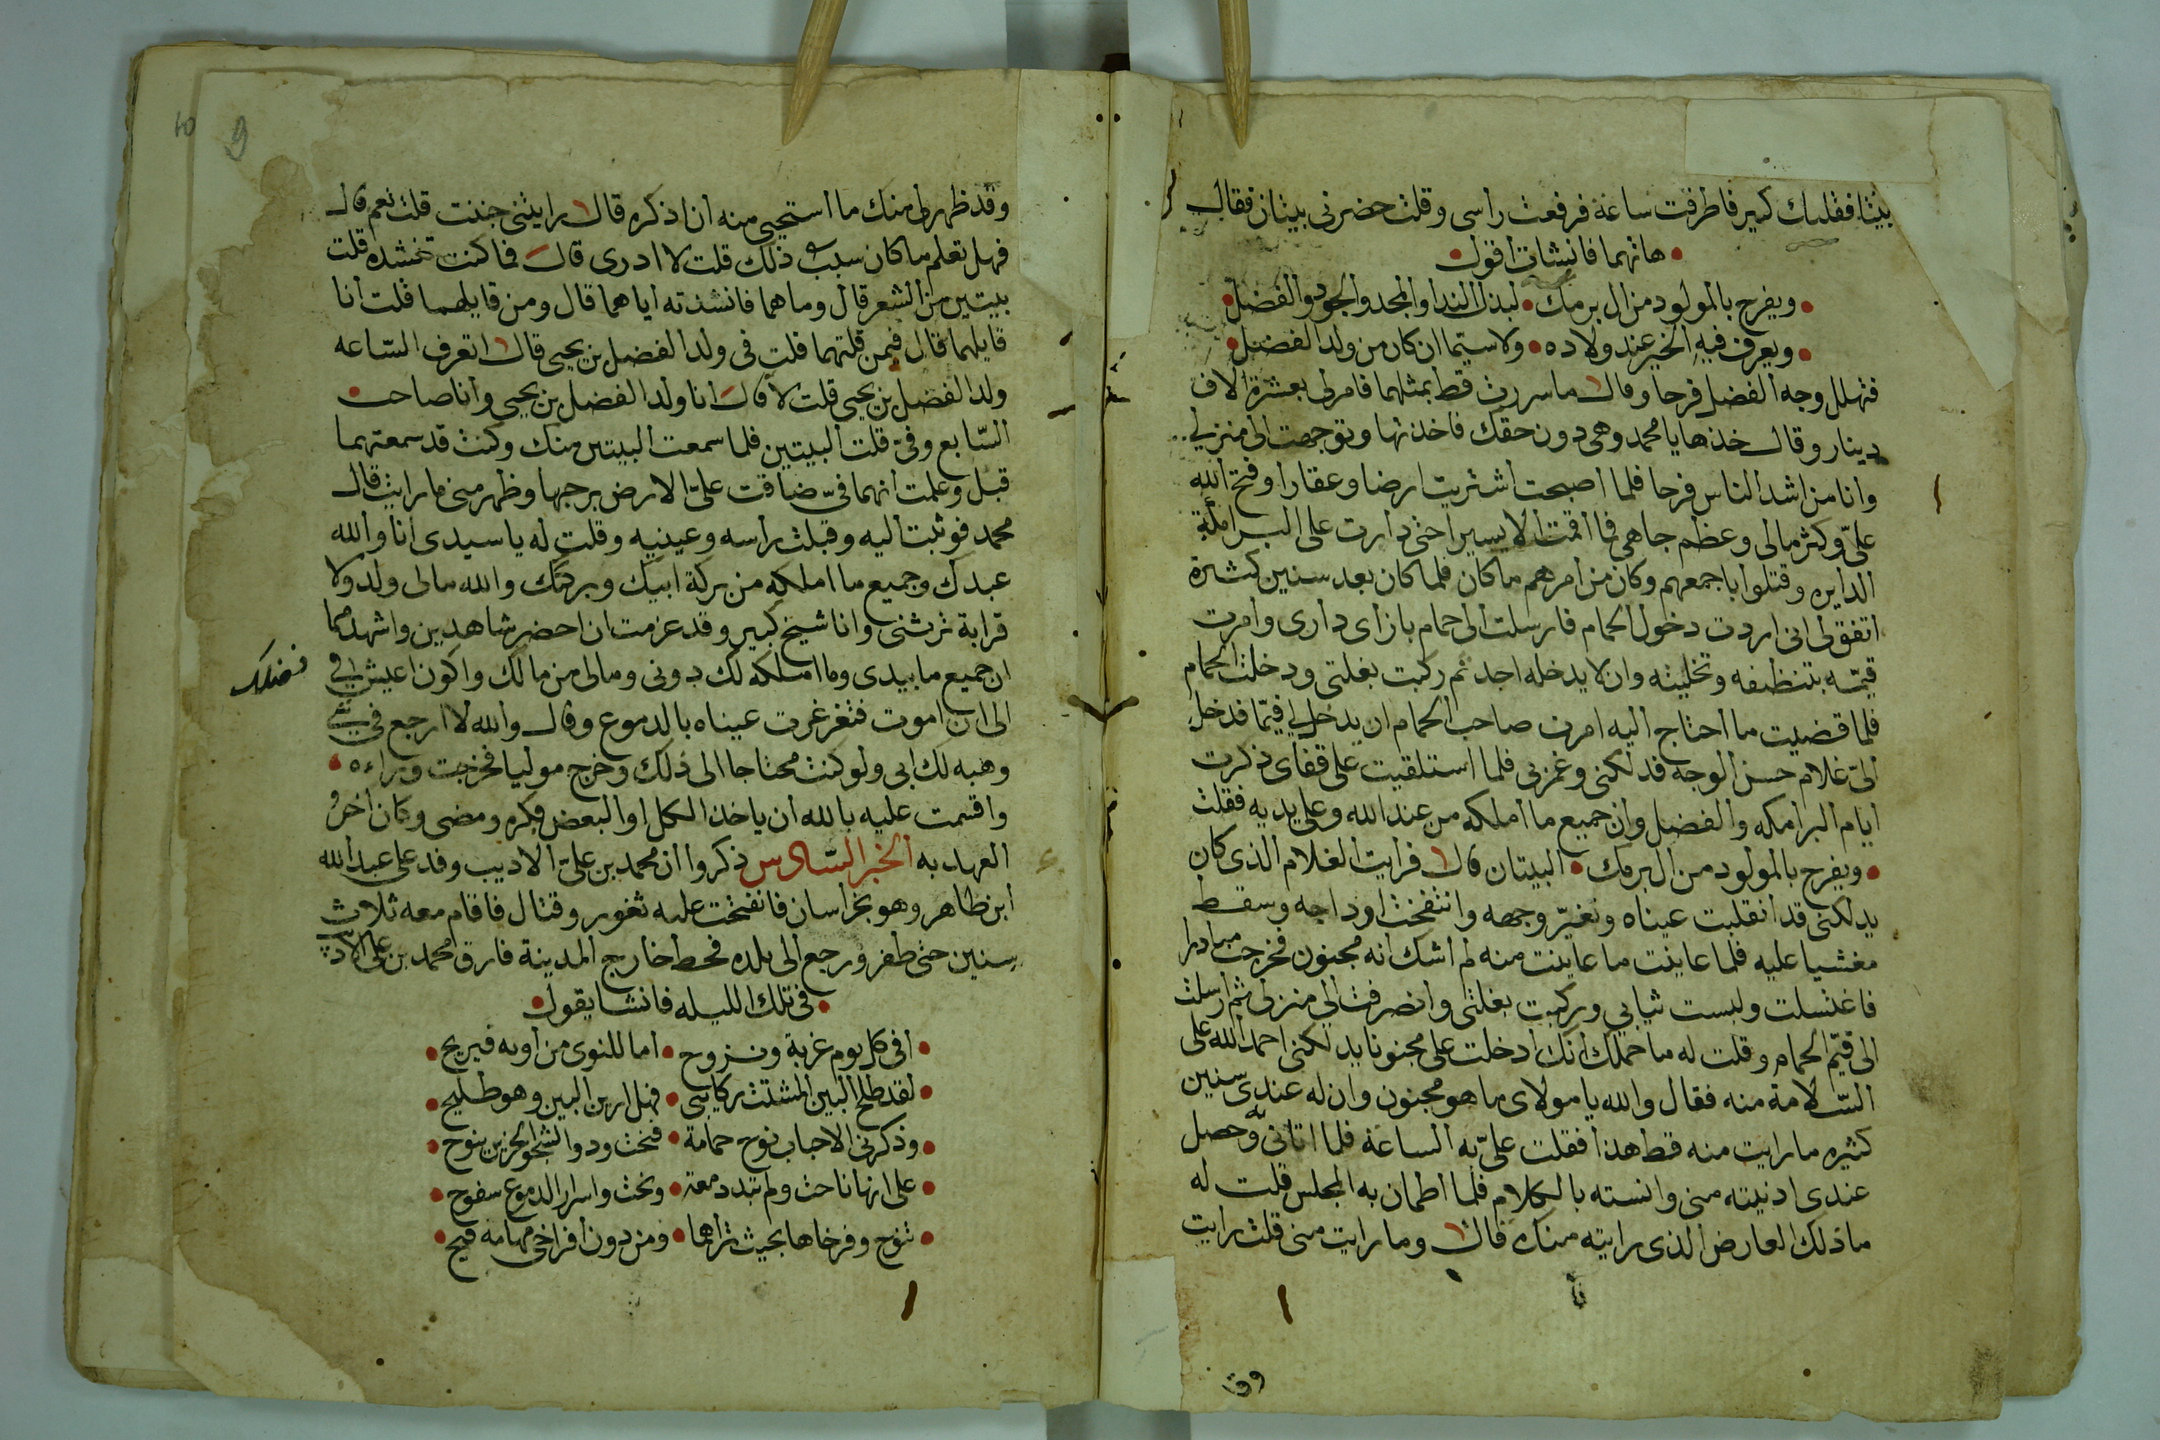 بيتا فقليك كبير فاطرقت ساعة فرفعت راسى وقلت حضرنى بيتان فقال
هاتهما فانشات اقول
ويفرح بالمولود من ال برمك • لبذل الندا والمجد والجود والفضل
ويعرف فيه الخير عند ولاده • ولاسيما ان كان من ولد الفضل
فتهلل وجه الفضل فرحا وقال ما سررت قط بمثلهما فامر لى بعشرة الاف
دينار وقال خذها يا محمد وهى دون حقك فاخذتها وتوجهت الى منزلى
وانا من اشد الناس فرحا فلما اصبحت اشتريت ارضا وعقارا وفتح الله
علىّ وكثر مالى وعظم جاهى فما اقمت الا يسيرا حتى دارت على البرامكة
الدايره وقتلوا باجمعهم وكان من امرهم ما كان فلما كان بعد سنين كثيرة
اتفق لى انى اردت دخول الحمام فارسلت الى حمام بازاى دارى وامرت
قيّمه بتنظيفه وتخليته وان لا يدخله احد ثم ركبت بغلتى ودخلت الحمام
فلما قضيت ما احتاج اليه امرت صاحب الحمام ان يدخل لى قيّما فدخل
الىّ غلام حسن الوجه فدلكنى وغمزنى فلما استلقيت على قفاى ذكرت
ايام البرامكه والفضل وان جميع ما املكه من عند الله وعلى يديه فقلت
ويفرح بالمولود من ال برمك • البيتان قال فرايت الغلام الذى كان
يدلكنى قد انقلبت عيناه وتغيّر وجهه وانتفخت اوداجه وسقط
مغشيا عليه فلما عاينت ما عاينت منه لم اشك انه مجنون فخرجت مبادرا
فاغتسلت ولبست ثيابي وركبت بغلتى وانصرفت الى منزلى ثم ارسلت
الى قيّم الحمام وقلت له ما حملك انك ادخلت على مجنونا يدلكنى احمد الله على
السّلامة منه فقال والله يا مولاى ما هو مجنون وان له عندى سنين
كثيره ما رايت منه قط هذا فقلت علىّ به الساعة فلما اتانى وحصل
عندى ادنيته منى وانسته بالكلام فلما اطمان به المجلس قلت له
ما ذلك العارض الذى رايته منك قال وما رايت منى قلت رايت
وقد
وقد ظهر لى منك ما استحيى منه ان اذكره قال رايتنى جننت قلت نعم قال
فهل تعلم ما كان سبب ذلك قلت لا ادرى قال فما كنت تنشده قلت
بيتين من الشعر قال وما هما فانشدته اياهما قال ومن قايلهما قلت انا
قايلهما قال فيمن قلتهما قلت فى ولد الفضل بن يحيى قال اتعرف السّاعه
ولد الفضل بن يحيى قلت لا قال انا ولد الفضل بن يحيى وانا صاحب
السّابع وفىّ قلت البيتين فلما سمعت البيتين منك وكنت قد سمعتهما
قبل وعلمت انهما فىّ ضاقت علىّ الارض برحبها وظهر منى ما رايت قال
محمد فوثبت اليه وقبلت راسه وعينيه وقلت له يا سيدى انا والله
عبدك وجميع ما املكه من بركة ابيك وبركتك والله مالى ولد ولا
قرابة ترثنى وانا شيخ كبير وقد عزمت ان احضر شاهدين واشهدهما
ان جميع ما بيدى وما املكه لك دونى ومالى من مالك واكون اعيش فى
فضلك
الى ان اموت فتغرغرت عيناه بالدموع وقال والله لا ارجع فى شئ
وهبه لك ابى ولو كنت محتاجا الى ذلك وخرج موليا فخرجت وراءه
واقسمت عليه بالله ان ياخذ الكل او البعض فكره ومضى وكان اخر
العهد به الخبر السّادس ذكروا ان محمد بن علىّ الاديب وفد على عبد الله
ابن طاهر وهو بخراسان فانفتحت عليه ثغور وقتال فاقام معه ثلاث
سنين حتى ظفر ورجع الى بلده فحط خارج المدينة فارق محمد بن على الاديب
فى تلك الليله فانشا يقول
افى كل يوم غربة ونزوح • اما للنوى من اوبه فيريح
لقد طلح البين المشتت ركايبى • فهل ارين البين وهو طليح
وذكرنى الاحباب نوح حمامة • فنحت وذو الشجو الحزين ينوح
على انها ناحت ولم تبد دمعة • ونحت واسرار الدموع سفوح
تنوح وفرخاها بحيث تراهما • ومن دون افراخى مهامه فيح